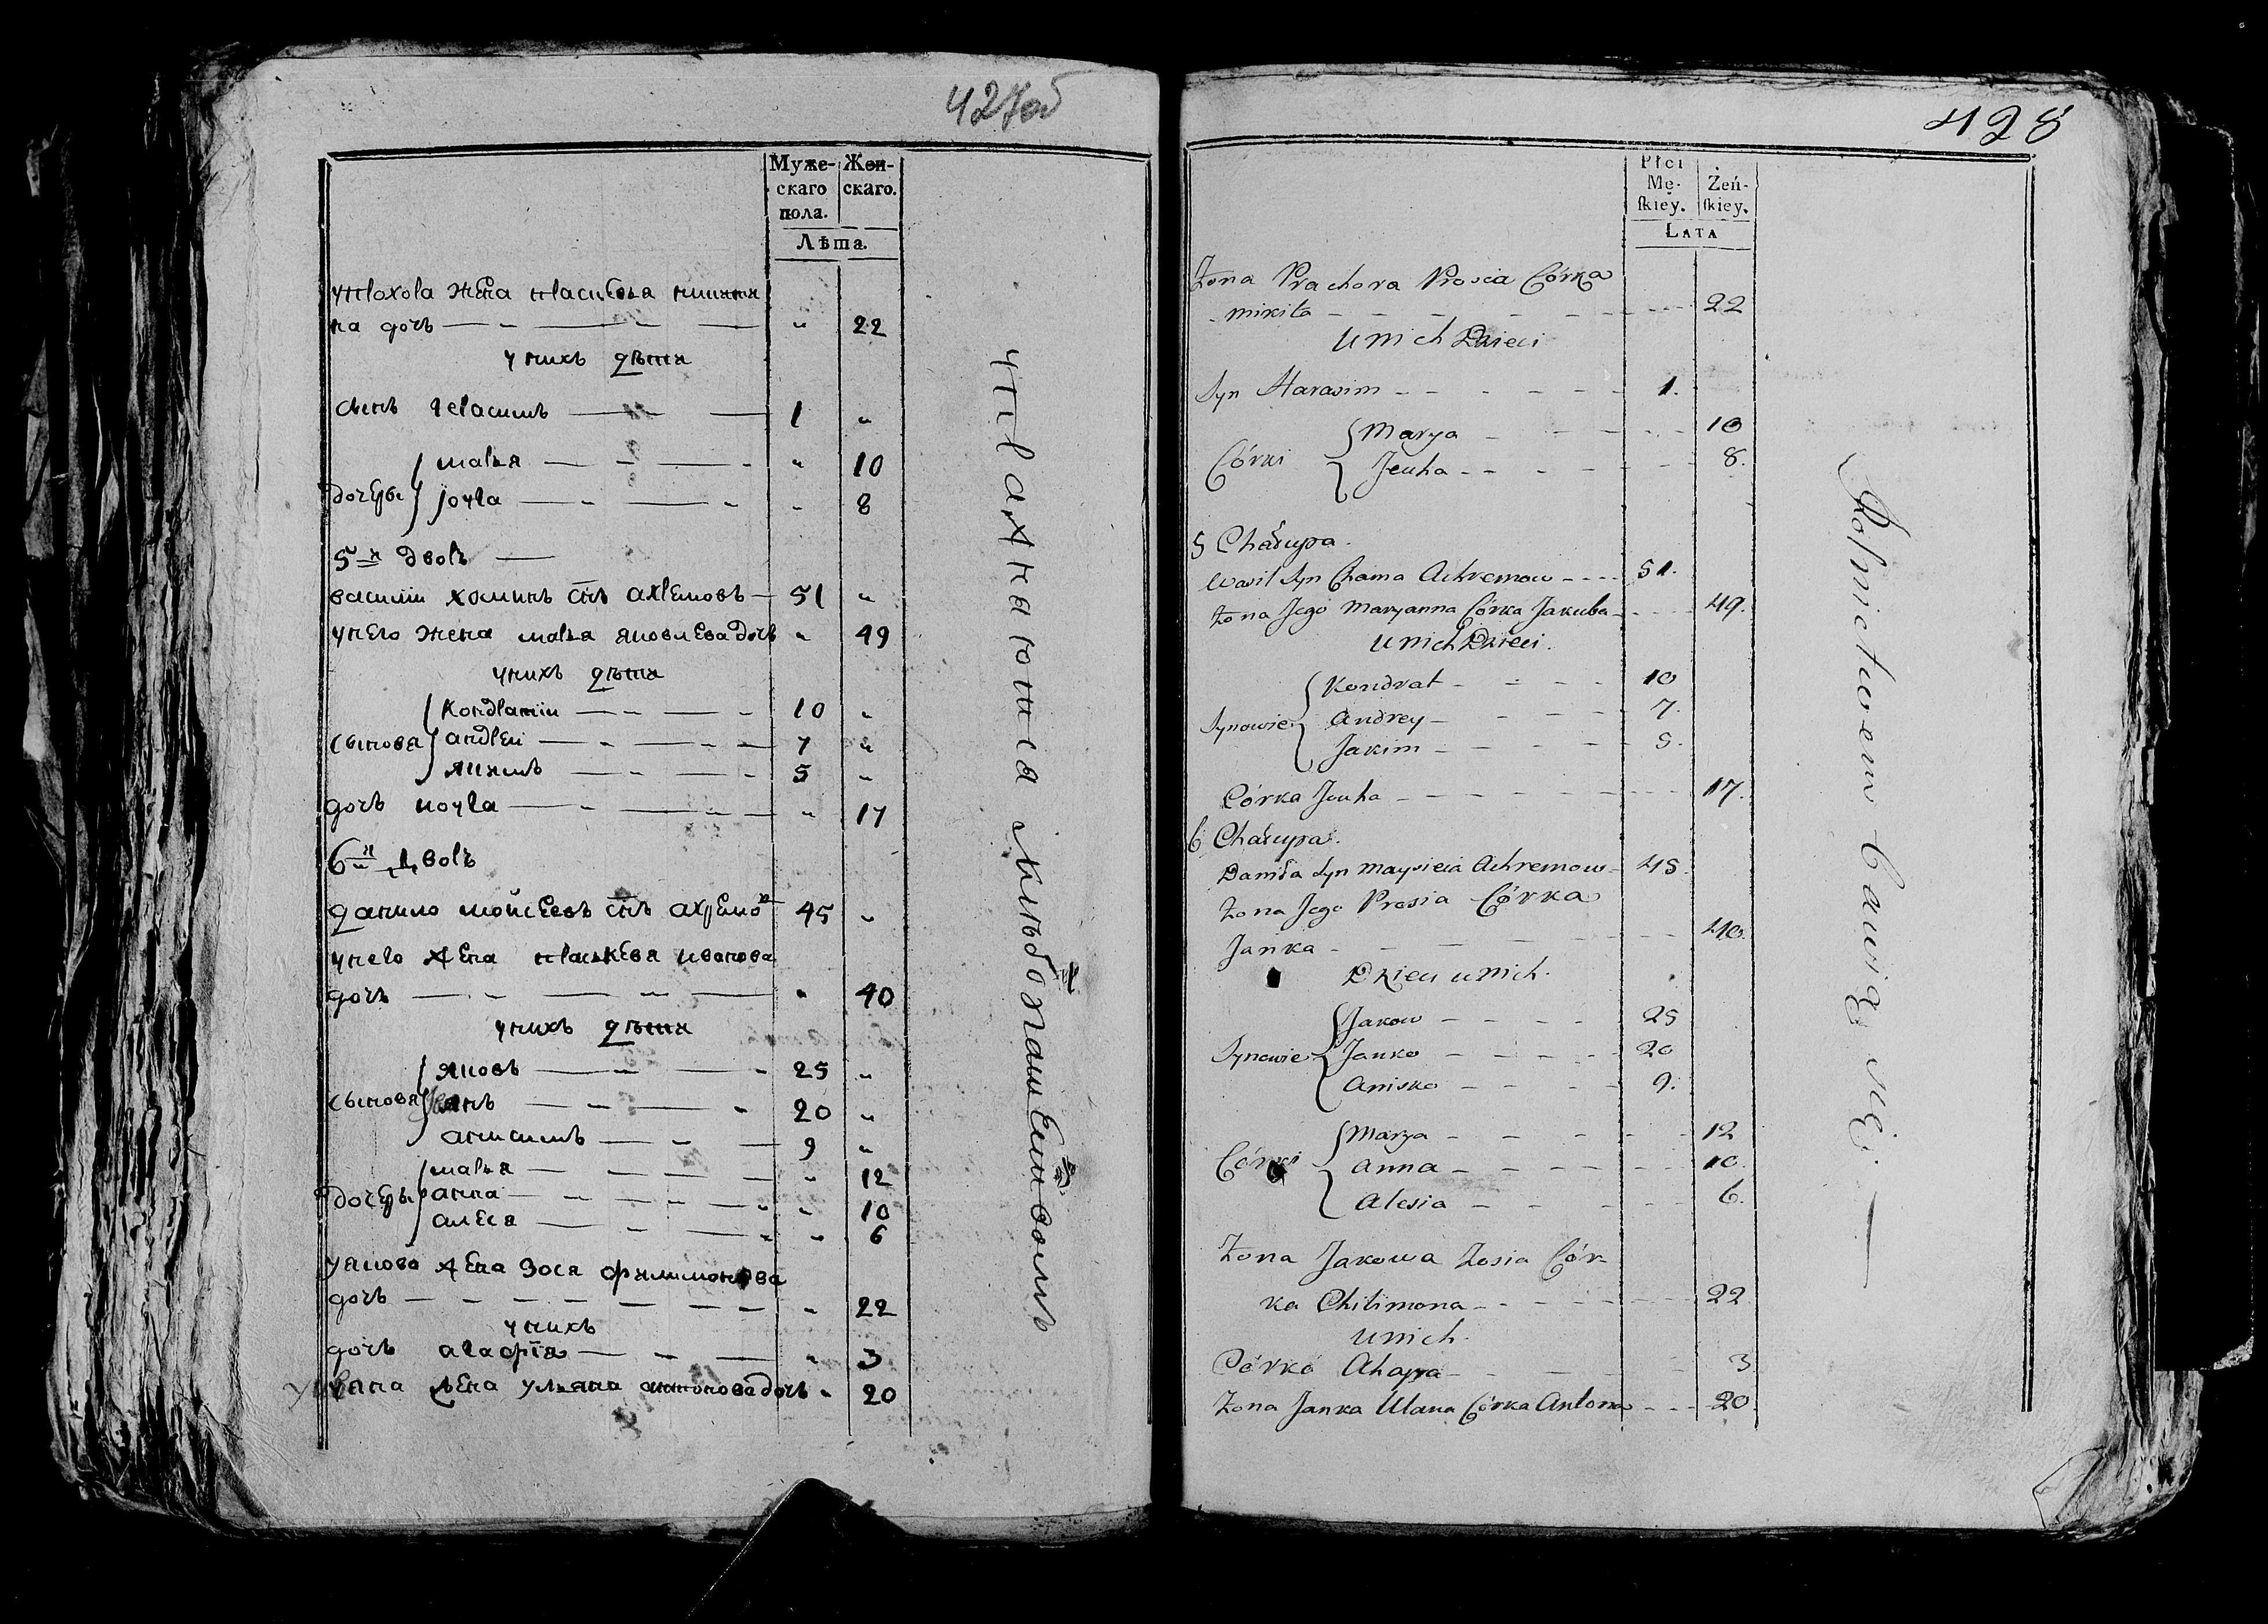 427об
Муже-
скаго
пола.
Жен-
скаго.
Лѣта.
упрохора жена прасковья никити
на дочь — „ 22
унихъ дѣти
сынъ герасимъ — 1 „
дочери
марья — „ 10
1оγга — „ 8
5й дворъ —
василій хоминъ снъ ахремовъ — 51 „
унего жена марья яковлева дочь „ 49
унихъ дѣти
сыновя
кондратій — 10 „
андреи — 7 „
якимъ — 5 „
дочь — „ 17
6й дворъ
данило мойсеевъ снъ ахремов 45 „
унего жена прасковя иванова
дочь — „ 40
унихъ дѣти
сыновя
яковъ — 25 „
янъ — 20 „
анисимъ — 9 „
дочеры
марья — „ 12
анна — „ 10
алеся — „ 6
уякова жена зося филимонова
дочь — „ 22
унихъ
дочь агафія — „ 3
жена ульяна антонова дочь „ 20
упражнаюпся хлѣбопашествомъ
428
Płci
Mę-
ſkiey.
Żeń-
ſkiey.
LATA
Żona Prachora Prosia Córka
mikita - - - 22
U nich Dzieci
Syn Harasim - - - 1.
Córki
Marya - - - 10
Jeuha - - - 8.
5 Chałupa.
Wasil Syn Chama Achremow - - - 51.
Żona Jego Maryanna Córka Jakuba - - - 49.
U nich Dzieci.
Synowie
Kondrat - - - 10
Andrey - - - 7.
Jakim - - - 5.
Córka Jeuha - - - 17.
6 Chałupa.
Daniła Syn Maysieia Achremow - 45.
Żona Jego Prosia Córka
Janka - - - 40.
Dzieci u nich.
Synowie
Jakow - - - 25
Janko - - - 20
Anisko - - - 9.
Córki
Marya - - - 12
Anna - - - 10.
Alesia - - - 6.
Żona Jakowa Zosia Cór-
ka Chilimona - - - 22
U nich.
Córka Ahapa - - - 3
Żona Janka Ulana Córka Antona - - - 20.
Rolnictwem bawią się —